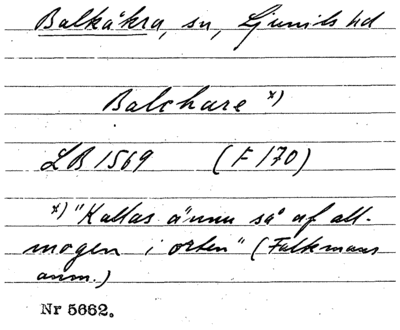 Balkåkra, sn, Ljunits hd
Balchare x)
LB 1569 (F 170)
x) "Kallas ännu så af all-
mogen i orten" (Falkmans
anm.)
Nr 5662.